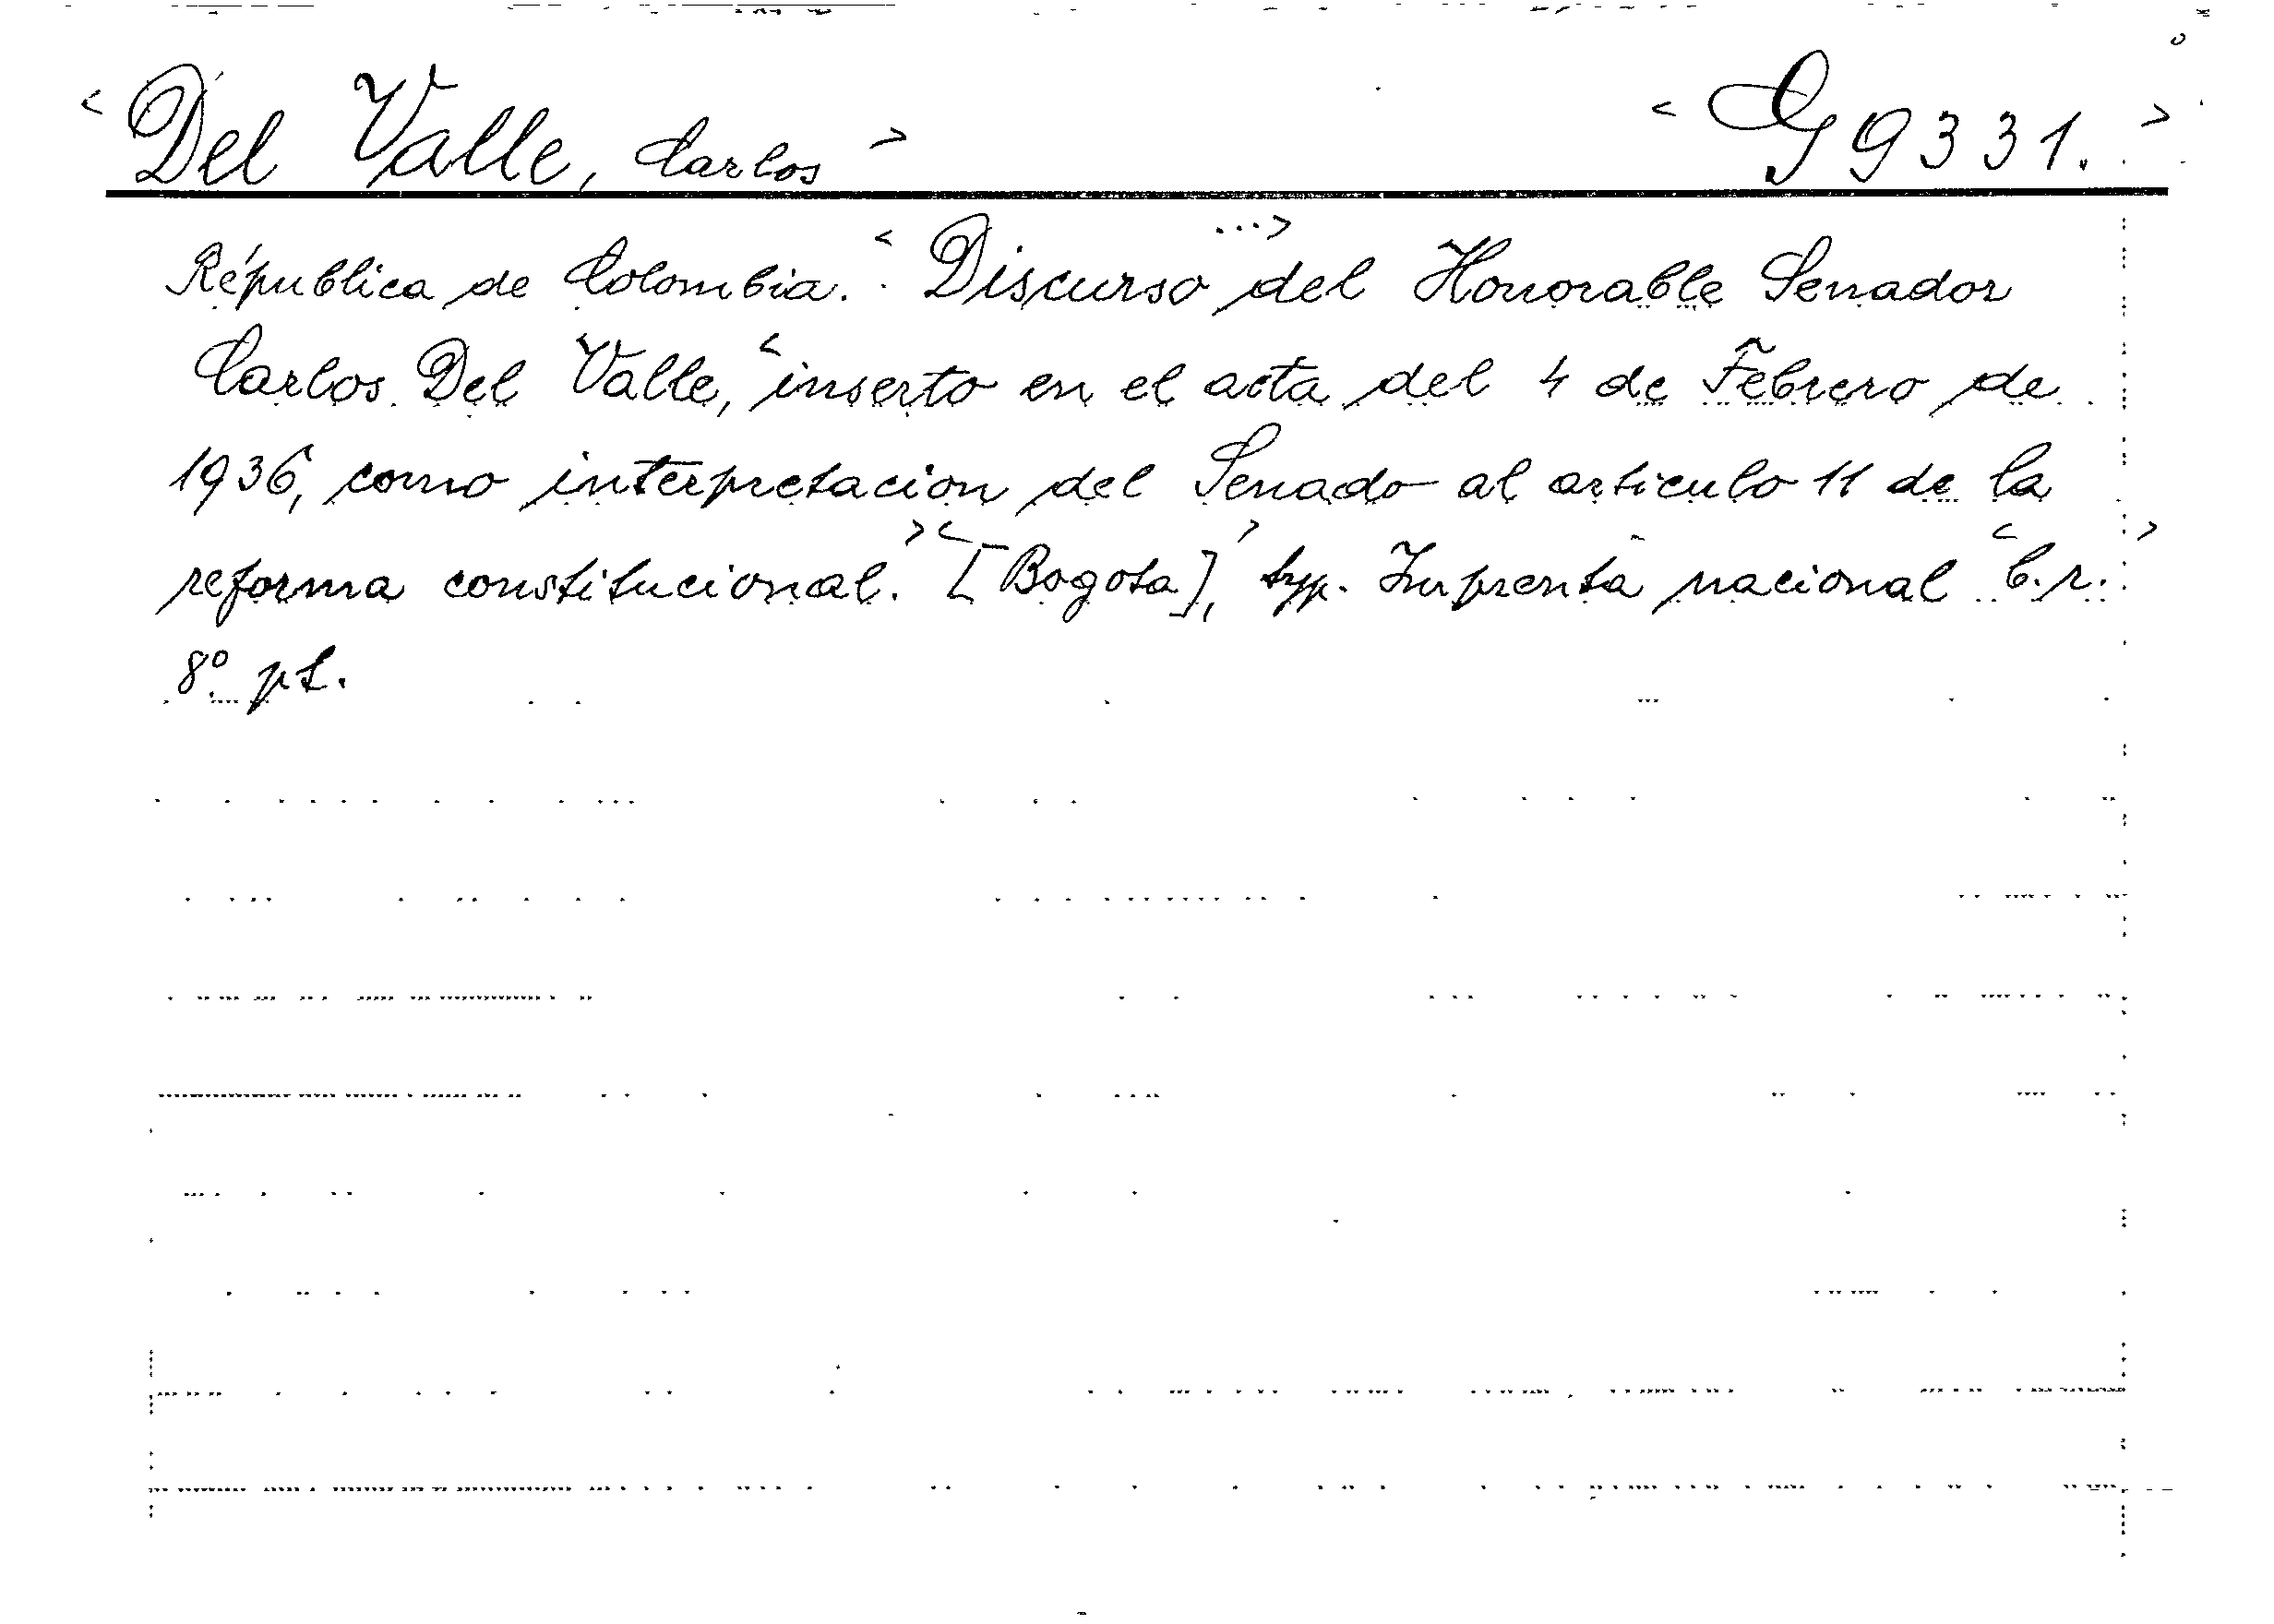 <Del Valle, Carlos> <G 9331.>
Républica de Colombia. <Discurso ...> del Honorable Senador
Carlos Del Valle, <inserto en el acta del 4 de Febrero de
1936, como interpretacion del Senado al articulo 11 de la
reforma constitucional.> <[Bogota],> typ. Imprenta nacional <b.r.>
8° pt.